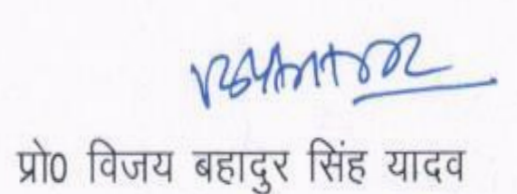 प्रो0 विजय बहादुर सिंह यादव